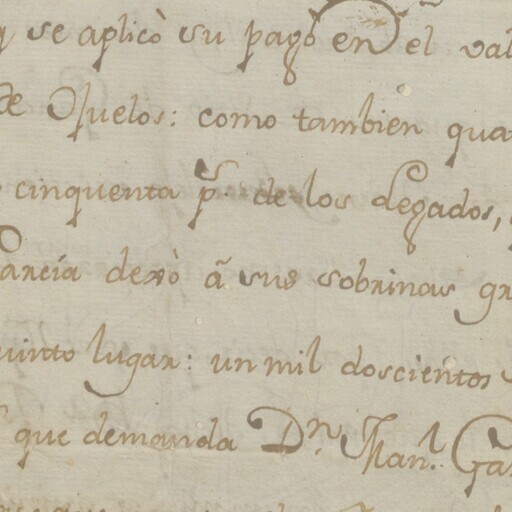 q se aplicò su pago en el val
de Ojuelos: como tambien qua
cinquenta p.s de los Legados,
arcía dexò â sus sobrinas gr
uinto lugar: un mil doscientos
que demanda D.n Man.l Ga